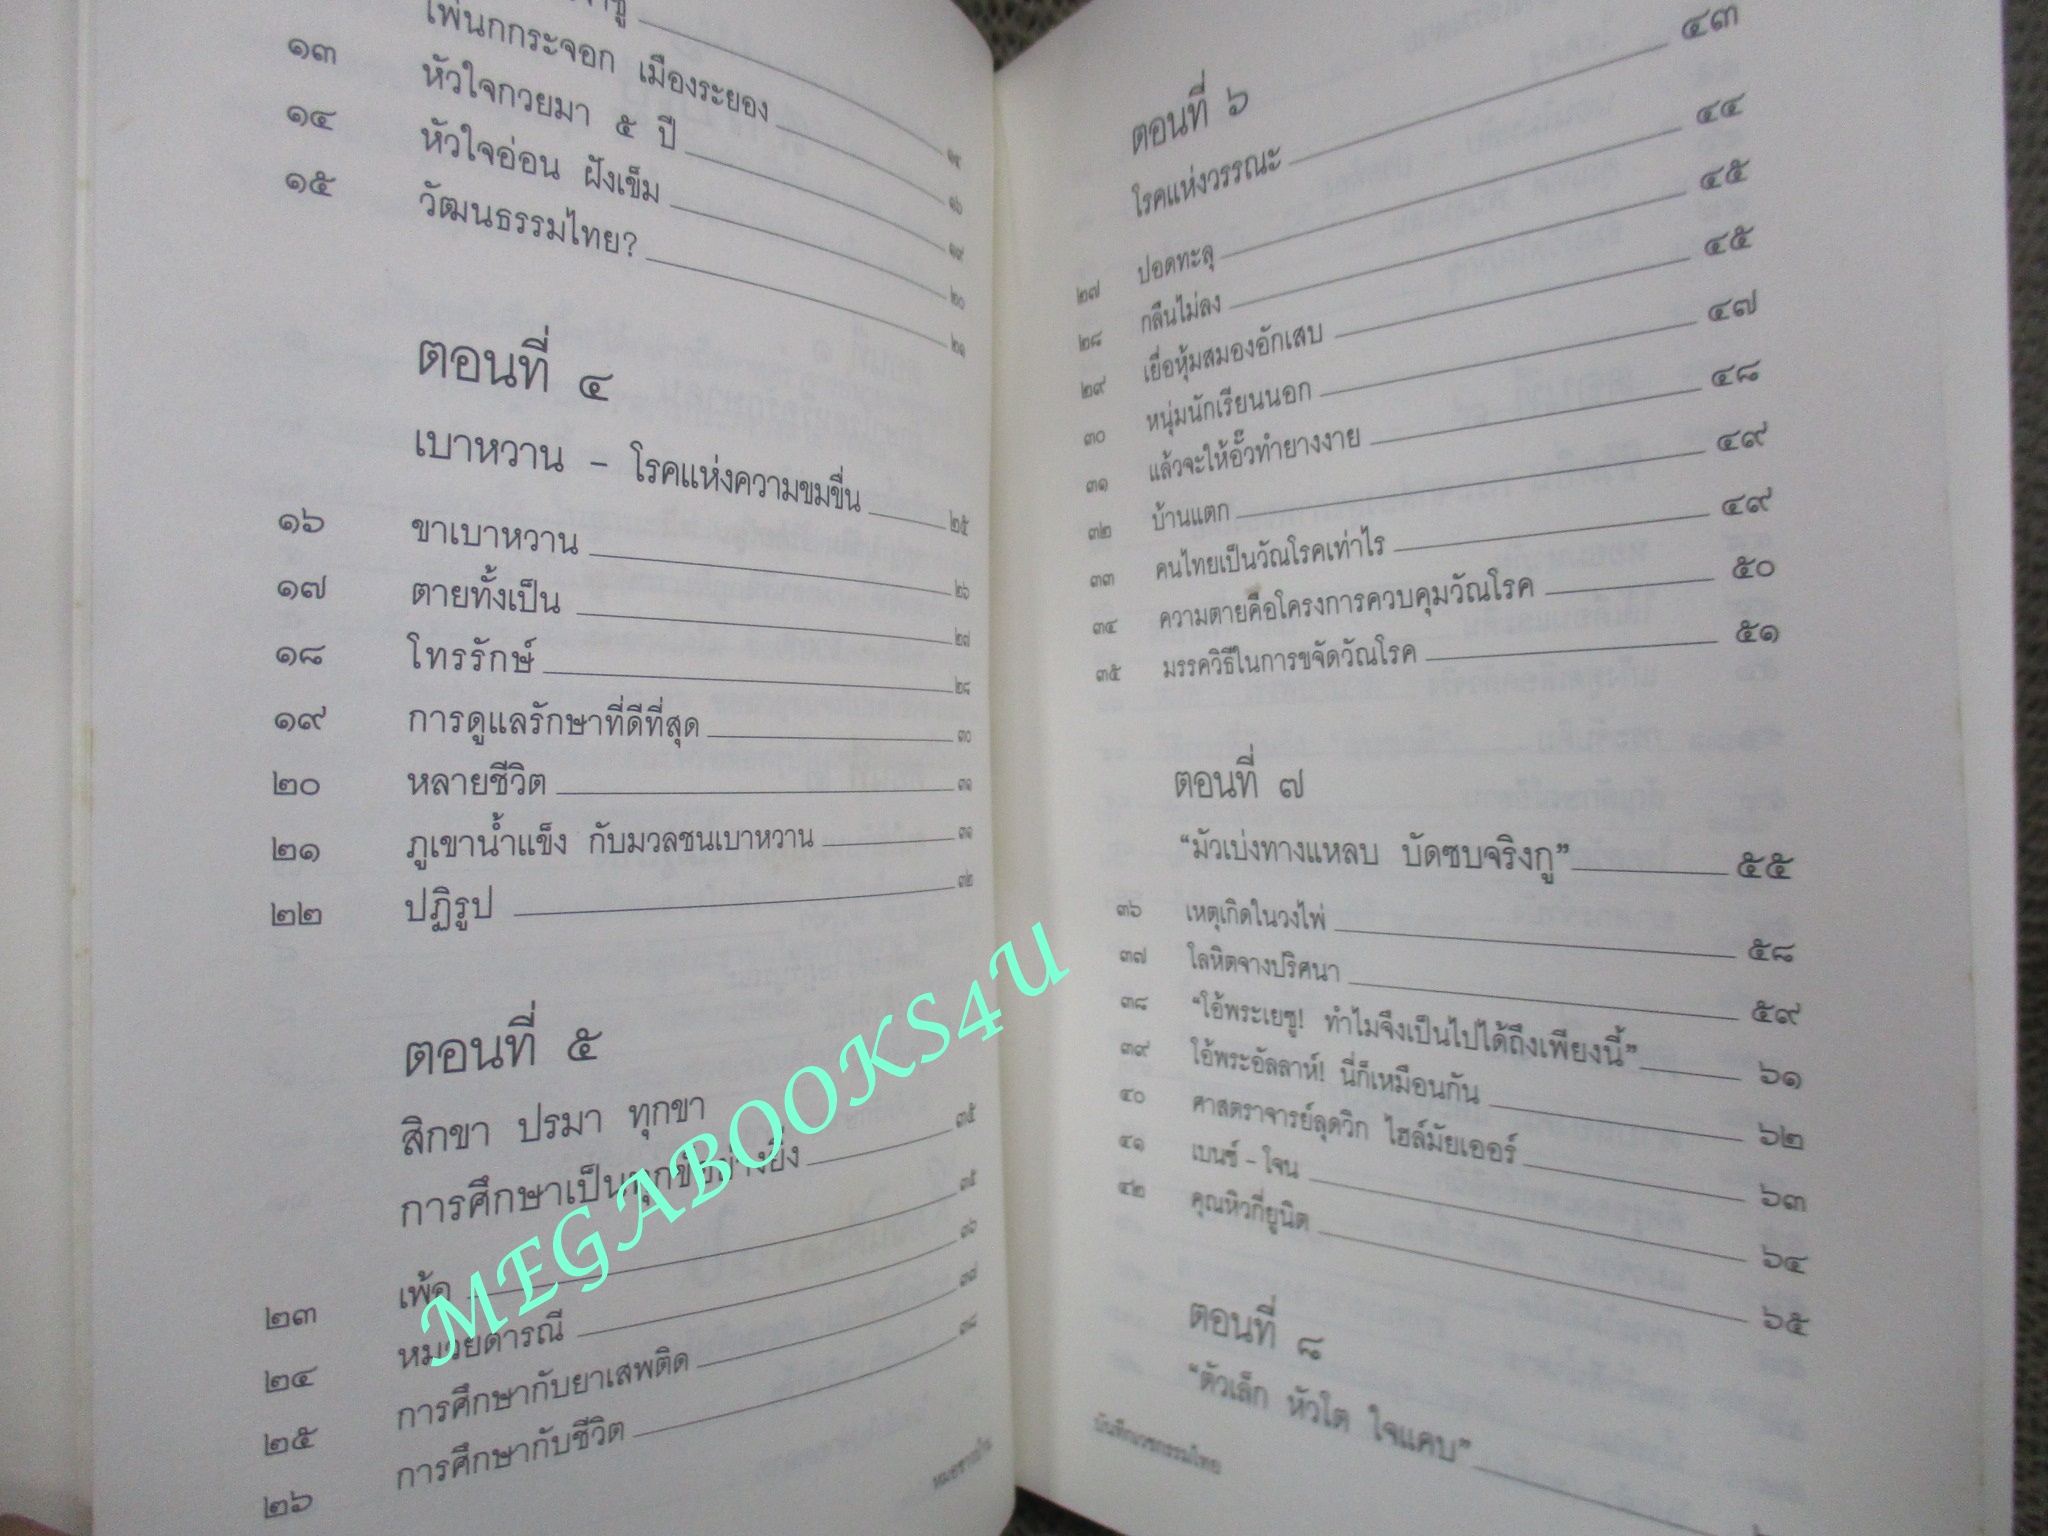 ๑๓ ไพ่นกกระจอก เมืองระยอง ๑๕
๑๔ หัวใจกวยมา ๕ ปี ๑๙
๑๕ หัวใจอ่อน ฝังเข็ม ๒๐
วัฒนธรรมไทย? ๒๑
ตอนที่ ๔
เบาหวาน - โรคแห่งความขมขื่น ๒๕
๑๖ ขาเบาหวาน ๒๖
๑๗ ตายทั้งเป็น ๒๗
๑๘ โทรรักษ์ ๒๘
๑๙ การดูแลรักษาที่ดีที่สุด ๓๐
๒๐ หลายชีวิต ๓๑
๒๑ ภูเขาน้ำแข็ง กับมวลชนเบาหวาน ๓๑
๒๒ ปฏิรูป ๓๒
ตอนที่ ๕
สิกขา ปรมา ทุกขา
การศึกษาเป็นทุกข์อย่างยิ่ง ๓๕
๒๓ เพ้อ ๓๕
๒๔ หมวยดารณี ๓๖
๒๕ การศึกษากับยาเสพติด ๓๗
๒๖ การศึกษากับชีวิต ๓๘
หมอชาวไร่
MEGABOOKS4U
ตอนที่ ๖
โรคแห่งวรรณะ ๔๓
๒๗ ปอดทะลุ ๔๔
๒๘ กลืนไม่ลง ๔๕
๒๙ เยื่อหุ้มสมองอักเสบ ๔๕
๓๐ หนุ่มนักเรียนนอก ๔๗
๓๑ แล้วจะให้อั๊วทำยางงาย ๔๘
๓๒ บ้านแตก ๔๙
๓๓ คนไทยเป็นวัณโรคเท่าไร ๔๙
๓๔ ความตายคือโครงการควบคุมวัณโรค ๕๐
๓๕ มรรควิธีในการขจัดวัณโรค ๕๑
ตอนที่ ๗
“มัวเบ่งทางแหลบ บัดซบจริงกู” ๕๕
๓๖ เหตุเกิดในวงไพ่ ๕๘
๓๗ โลหิตจางปริศนา ๕๙
๓๘ “โอ้พระเยซู! ทำไมจึงเป็นไปได้ถึงเพียงนี้” ๖๑
๓๙ โอ้พระอัลลาห์! นี่ก็เหมือนกัน ๖๒
๔๐ ศาสตราจารย์ลุดวิก ไฮล์มัยเออร์ ๖๓
๔๑ เบนซ์ - โจน ๖๔
๔๒ คุณหิวกี่ยูนิต ๖๕
ตอนที่ ๘
“ตัวเล็ก หัวโต ใจแคบ”
บันทึกเวชกรรมไทย